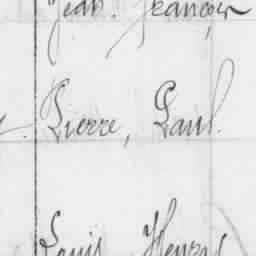 Jean. François
Pierre, Paul.
Louis Henry